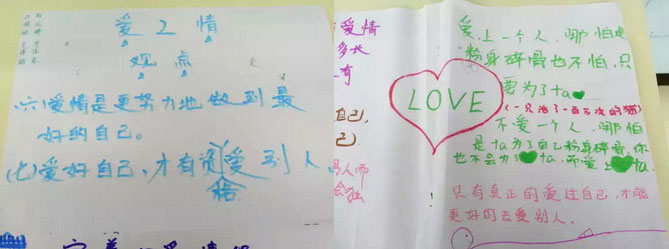 爱2情
观点
(六)爱情是更努力地做到最
好的自己。
(七)爱好自己,才有资爱别人
格
爱情
多大
有
自己,
己
别人而
会独
LOVE
爱上一个人,哪怕是
粉身碎骨也不怕,只
要为了ta
(一只活了一百万次的猫)
不爱一个人,哪怕
是ta为了自己粉身碎骨,你
也不会为ta,而爱上ta
只有真正的爱过自己,才能
更好的去爱别人。